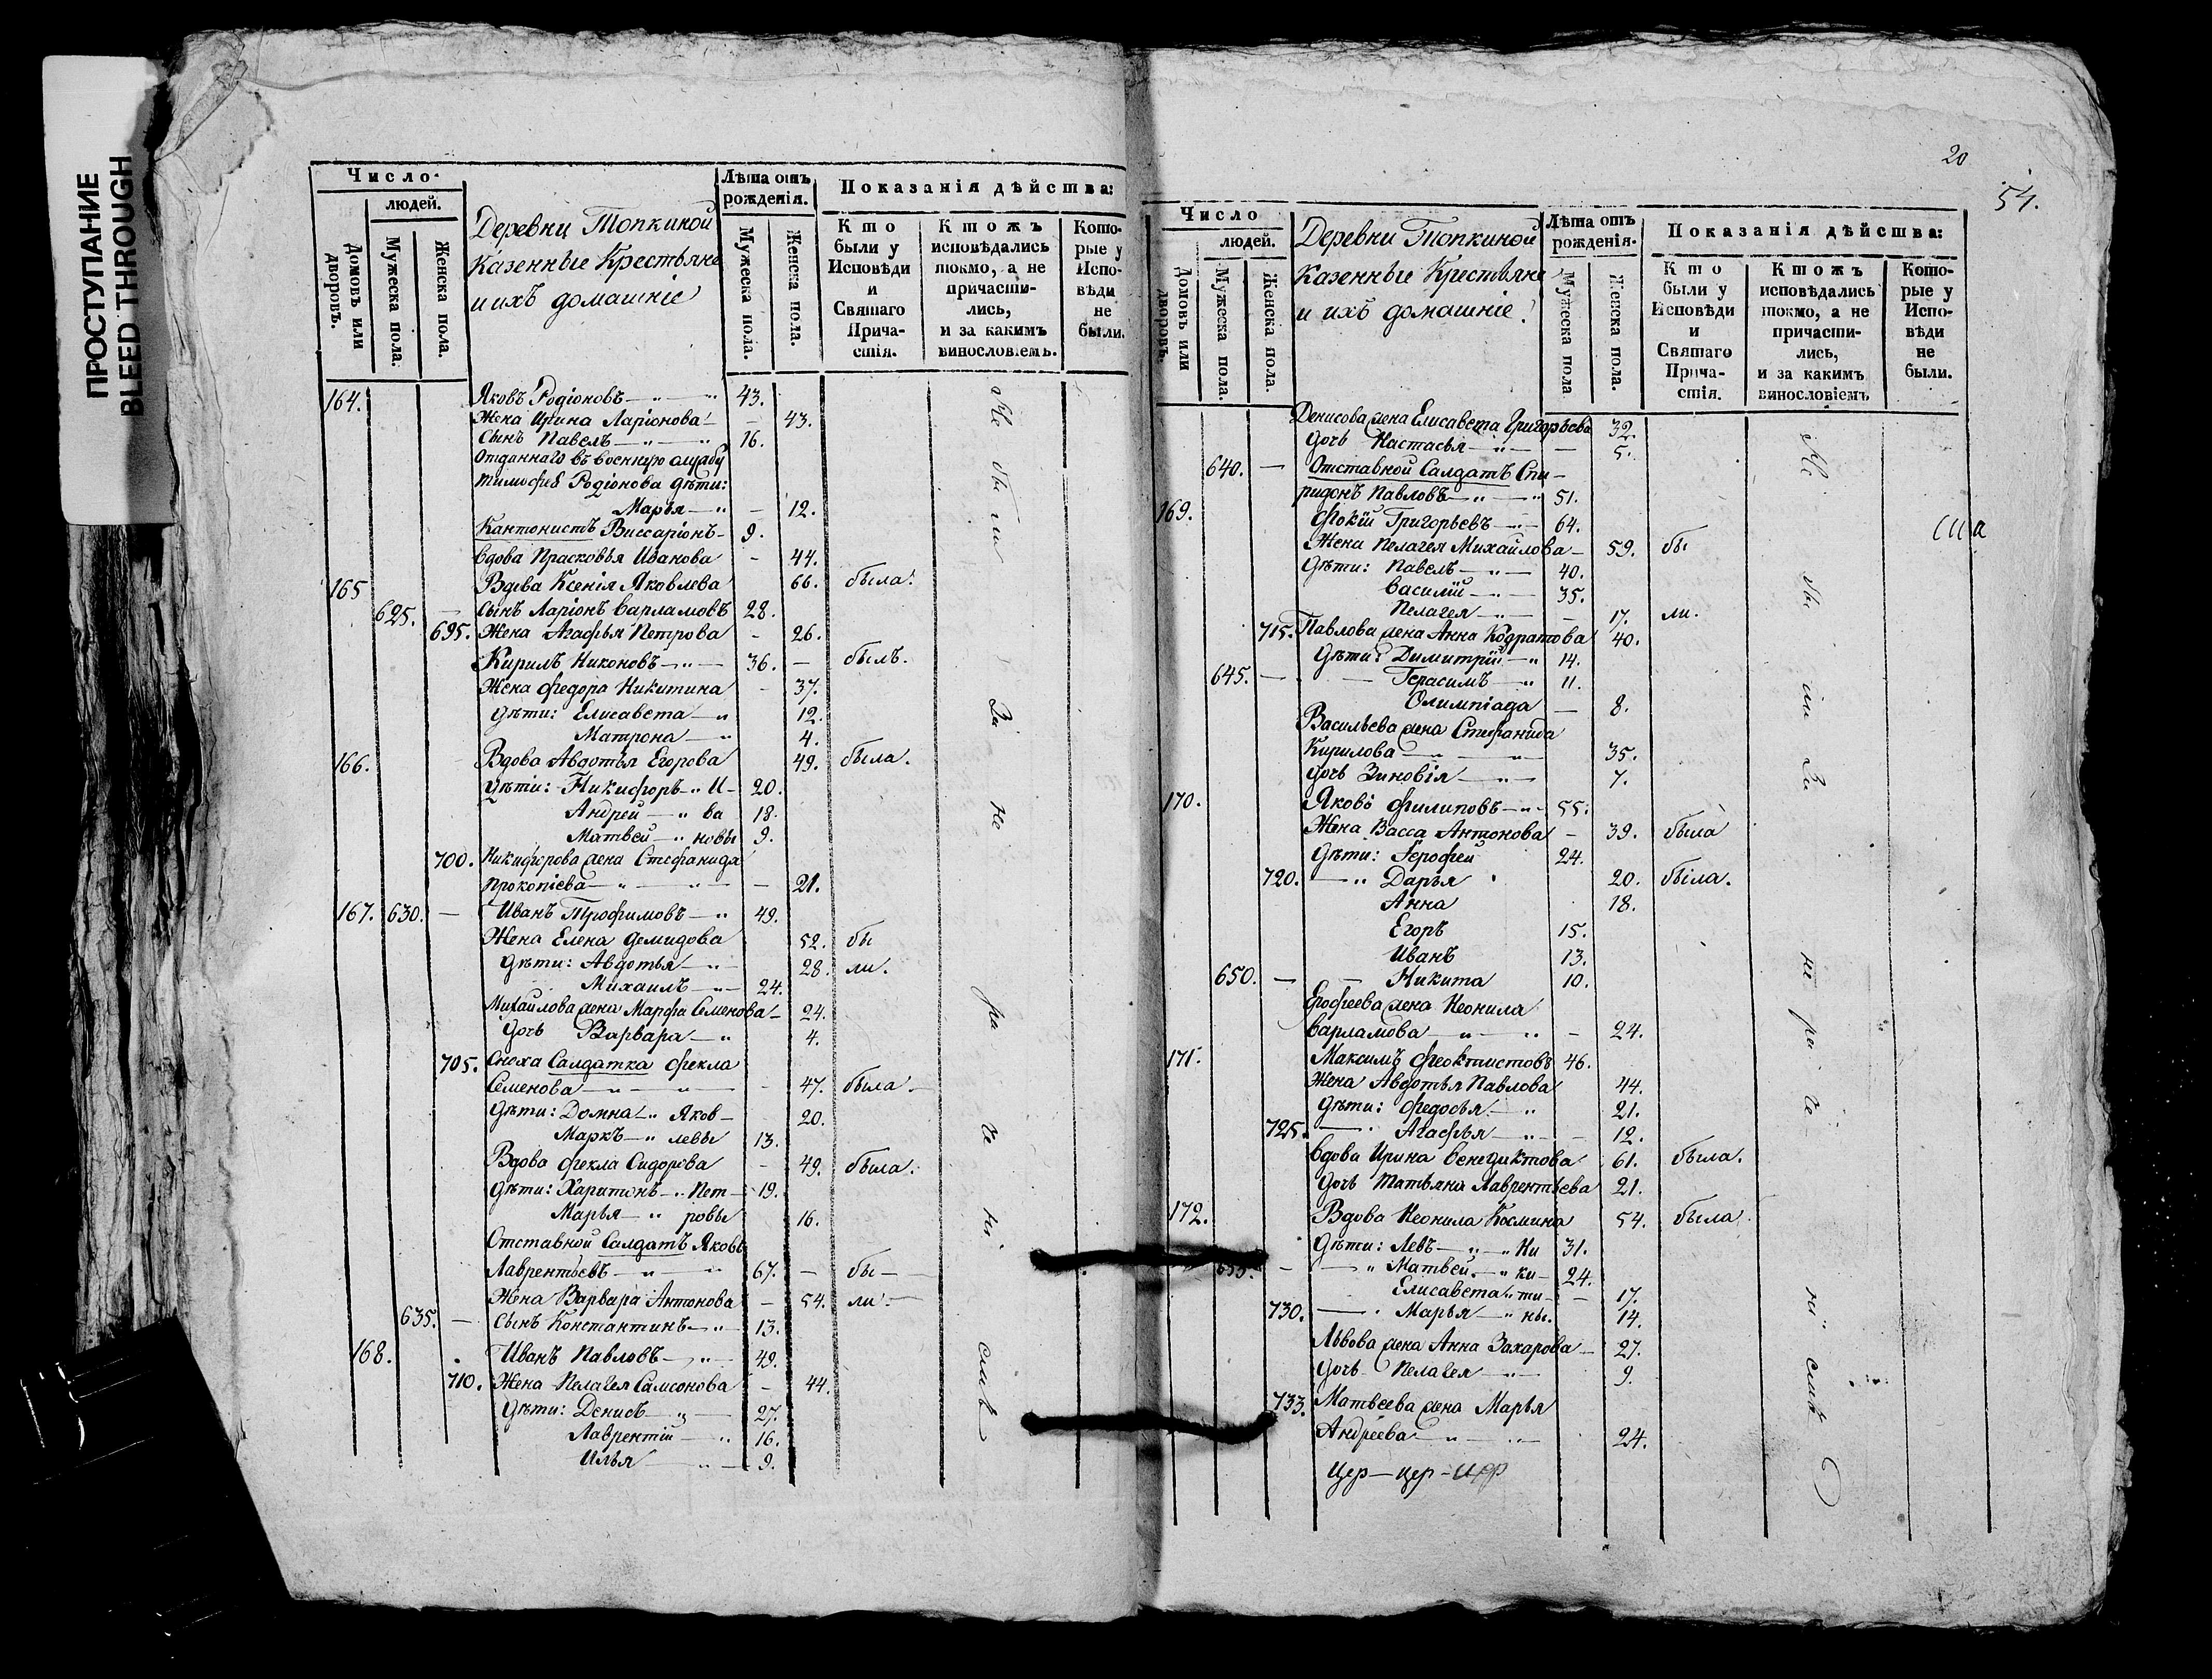 ПРОСТУПАНИЕ
BLEED THROUGH
Число
людей.
Домовъ или дворовъ.
Мужеска пола.
Женска пола.
Деревни Топкиной
Казенные Крестьяне
и ихъ домашніе
Лѣта отъ рожденія.
Мужеска пола.
Женска пола.
Показанія дѣйства:
Кто были у Исповѣди и Святаго Причастія.
Ктожъ исповѣдались токмо, а не причастились, и за какимъ винословіемъ.
Которые у Исповѣди не были.
164. Яковъ Родіоновъ 43.
Жена Ирина Ларіонова 43.
Сынъ Павелъ 16.
Отданнаго въ военную службу
Тимофея Родіонова дѣти:
Марья 12.
Кантонистъ Виссаріонъ 9.
Вдова Прасковья Иванова 44.
165 Вдова Ксенія Яковлева 66. была.
625. Сынъ Ларіонъ Варламовъ 28.
695. Жена Агафья Петрова 26.
Кирилъ Никоновъ 36. былъ.
Жена Федора Никитина 37.
Дѣти: Елисавета 12.
Матрона 4.
166. Вдова Авдотья Егорова 49. была.
Дѣти: Никифоръ И- 20.
Андрей ва 18.
Матвей новы 9.
700. Никифорова жена Стефанида
Прокопіева 21.
167. 630. Иванъ Трофимовъ 49.
Жена Елена Демидова 52. бы
Дѣти: Авдотья 28. ли.
Михаилъ 24.
Михайлова жена Марфа Семенова 24.
Дочь Варвара 4.
705. Сноха Салдатка Фекла
Семенова 47. была
Дѣти: Домна Яков- 20.
Маркъ левы 13.
Вдова Фекла Сидорова 49. была.
Дѣти: Харитонъ Пет- 19.
Марья ровы 16.
Отставной Салдатъ Яковъ
Лаврентьевъ 67. бы-
Жена Варвара Антонова 54. ли.
635. Сынъ Константинъ 13.
168. Иванъ Павловъ 49.
710. Жена Пелагея Самсонова 44.
Дѣти: Денисъ 27.
Лаврентій 16.
Илья 9.
Не были За не ра че ні емъ
20
54.
Число
людей.
Домовъ или дворовъ.
Мужеска пола.
Женска пола.
Деревни Топкиной
Казенные Крестьяне
и ихъ домашніе.
Лѣта отъ рожденія.
Мужеска пола
Женска пола.
Показанія дѣйства:
Кто были у Исповѣди и Святаго Причастія.
Ктожъ исповѣдались токмо, а не причастились, и за какимъ винословіемъ
Которые у Исповѣди не были.
Денисова жена Елисавета Григорьева 32.
Дочь Настасья 5.
640. Отставной Салдатъ Спи-
ридонъ Павловъ 51.
169. Фокій Григорьевъ 64.
Жена Пелагея Михайлова 59. бы
Дѣти: Павелъ 40.
Василій 35.
Пелагея 17. ли.
715. Павлова жена Анна Кодратова 40.
Дѣти: Димитрій 14.
645. Герасимъ 11.
Олимпіада 8.
Васильева жена Стефанида
Кирилова 35.
Дочь Зиновія 7.
170. Яковъ Филиповъ 55.
Жена Васса Антонова 39. была
Дѣти: Ерофей 24.
720. Дарья 20. была.
Анна 18.
Егоръ 15.
Иванъ 13.
650. Никита 10.
Ерофеева жена Неонила
Варламова 24.
171. Максимъ Феоктистовъ 46.
Жена Авдотья Павлова 44.
Дѣти: Федосья 21.
725. Агафья 12.
Вдова Ирина Венедиктова 61. была.
Дочь Татьяна Лаврентьева 21.
172. Вдова Неонила Космина 54. была.
Дѣти: Левъ Ни 31.
655. Матвей ки- 24.
Елисавета ти- 17.
730. Марья ны. 14.
Львова жена Анна Захарова 27.
Дочь Пелагея 9.
733. Матвеева жена Марья
Андреева 24.
Не бы ли За не ра че ні емъ